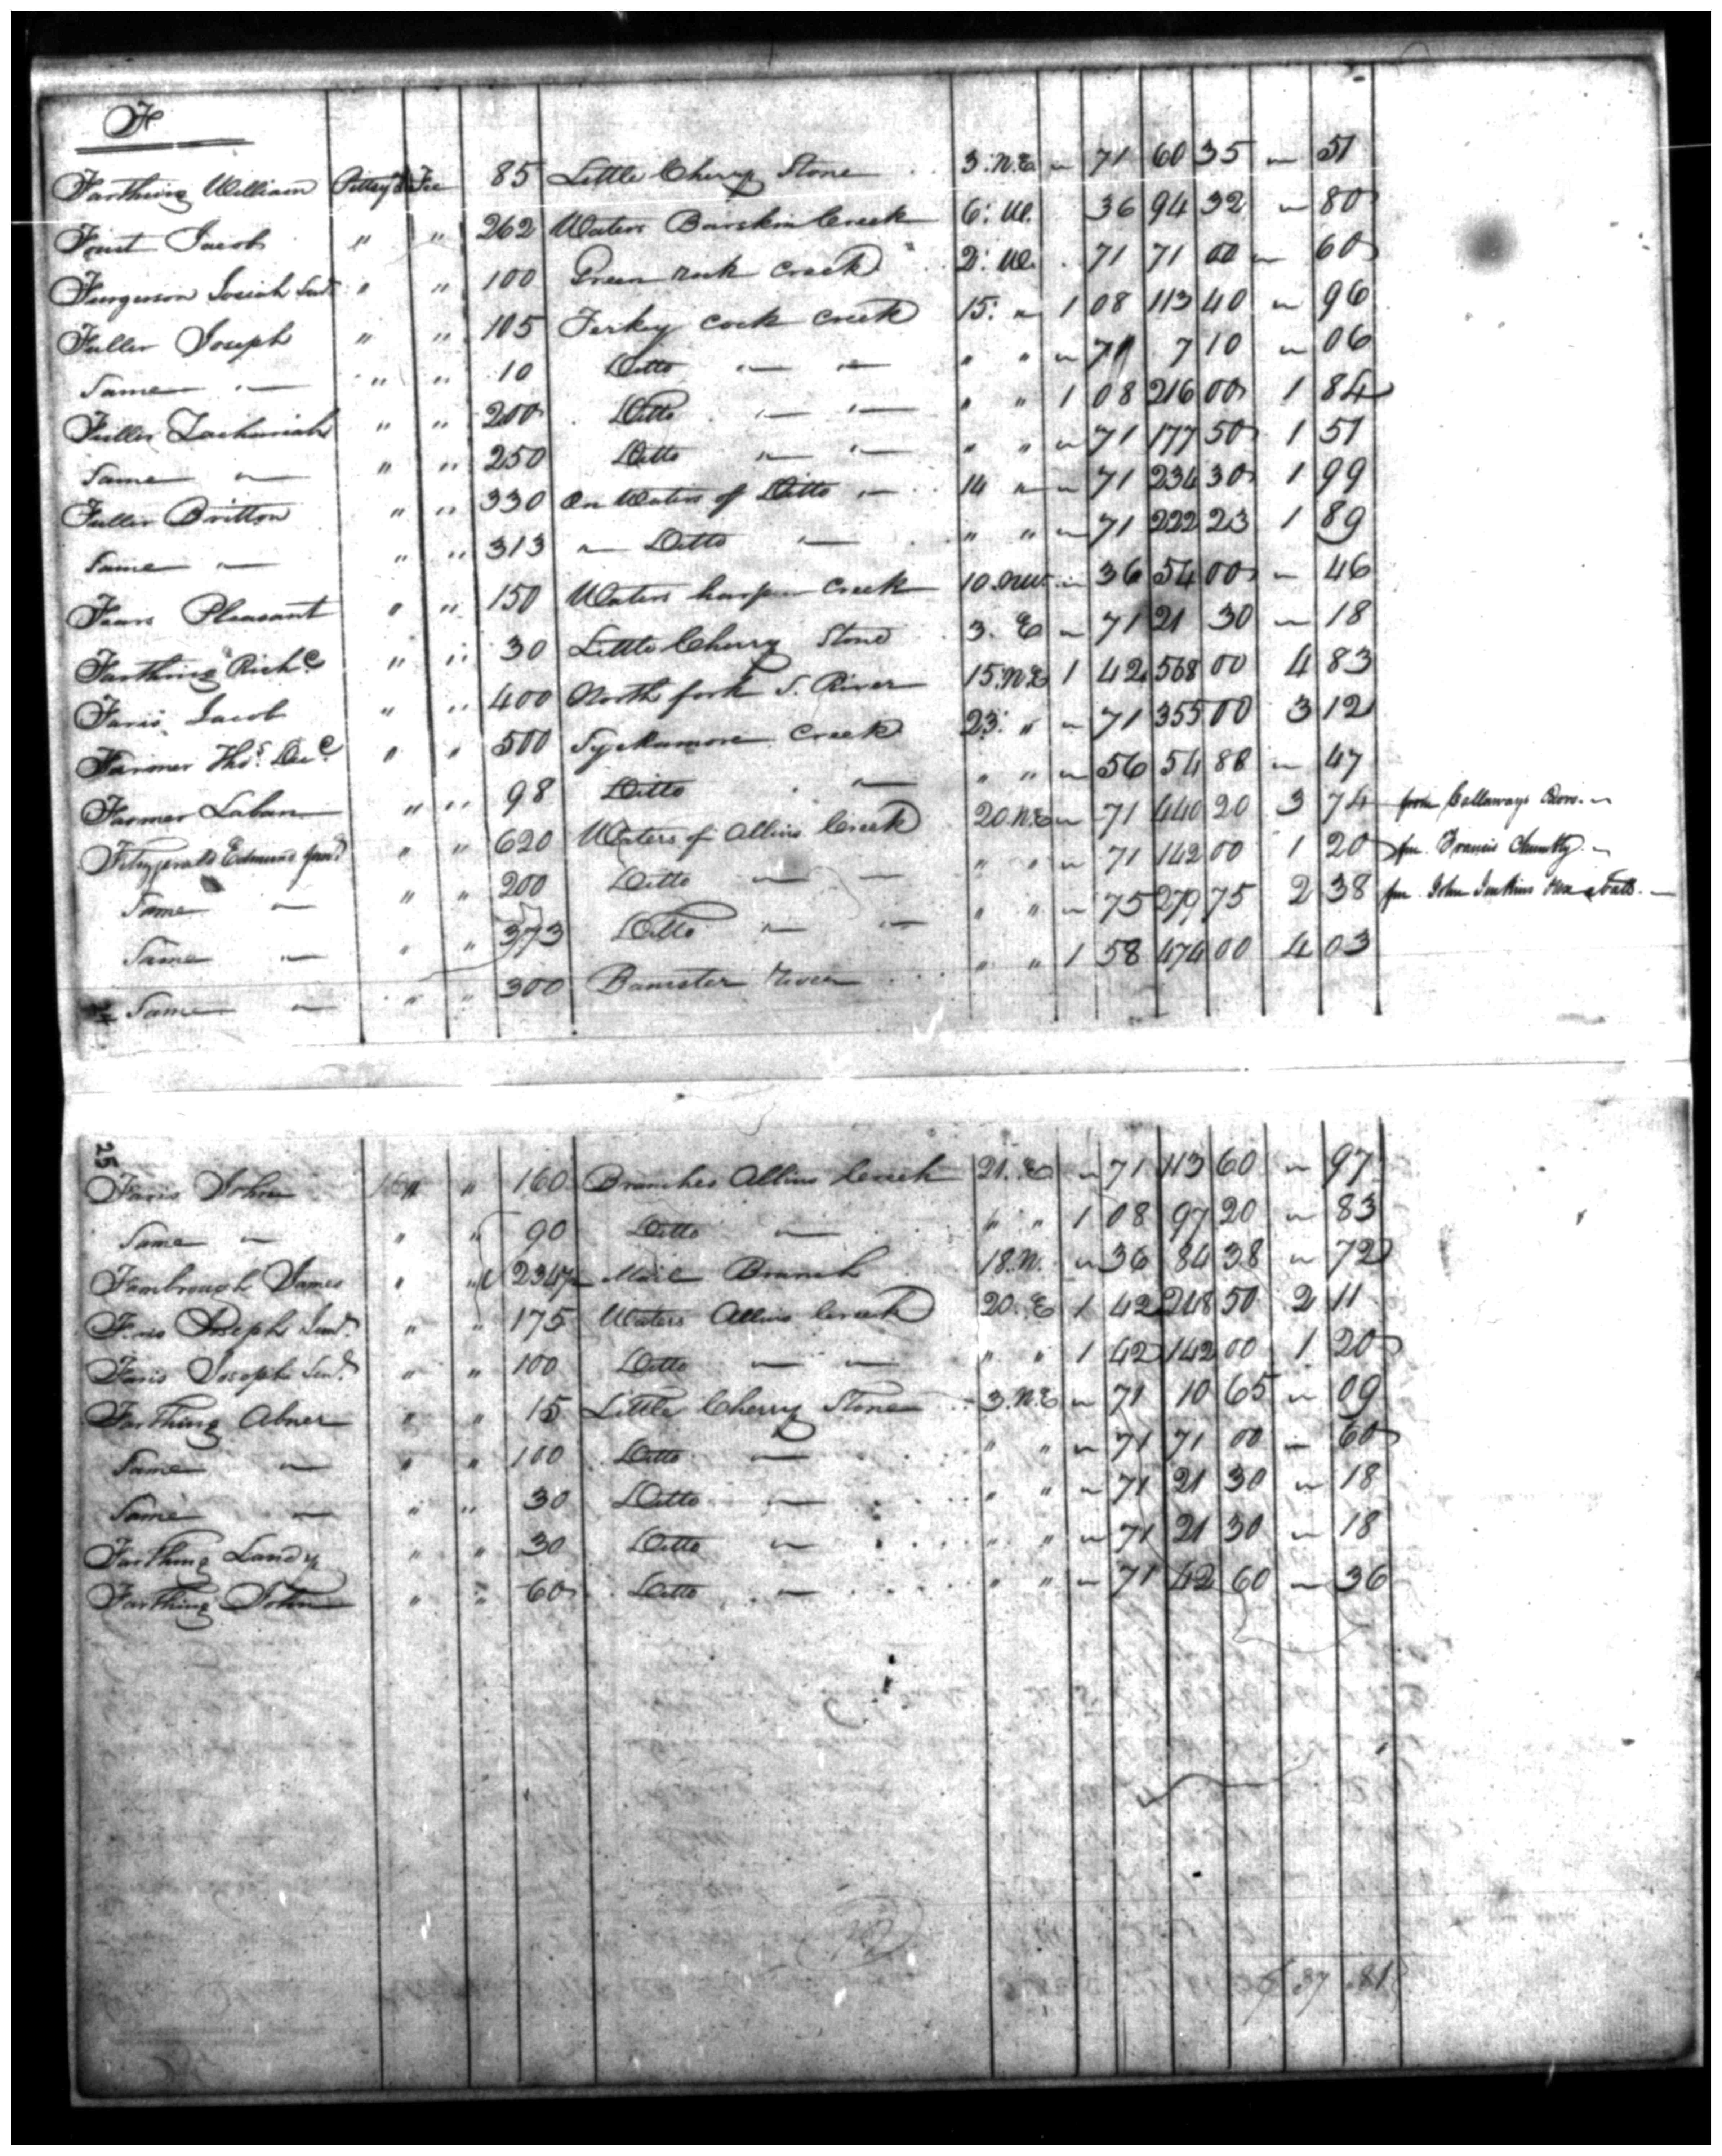 F
Farthing William Pittsyl Fee 85 Little Cherry Stone 3. N.E " 71 60 35 " 51
Foust Jacob " " 262 Waters Bairskin Creek 6. W. 36 94 32 " 80
Furgerson Josiah Senr " " 100 Green rock Creek 2. W. 71 71 00 " 60
Fuller Joseph " " 105 Terkey cock creek 15. " 1 08 113 40 " 96
Same " " " 10 Ditto " " " " " 71 7 10 " 06
Fuller Zachariah " " 200 Ditto " " " " 1 08 216 00 1 84
Same " " " 250 Ditto " " " " " 71 177 50 1 51
Fuller Britton " " 330 On Waters of Ditto " 14 " " 71 234 30 1 99
Same " " " 313 " Ditto " " " " 71 222 23 1 89
Fears Pleasant " " 150 Waters harpen Creek 10. NW " 36 54 00 " 46
Farthing Richd " " 30 Little Cherry Stone 3. E " 71 21 30 " 18
Faris Jacob " " 400 North fork S. River 15. N.E 1 42 568 00 4 83
Farmer Thos. Decd " " 500 Syckamore Creek 23. " " 71 355 00 3 12
Farmer Laban " " 98 Ditto " " " " 56 54 88 " 47
Fitzgerald Edmund " " 620 Waters of Allins Creek 20. N.E " 71 440 20 3 74 from Callaways
Same " " " 200 Ditto " " " " " 71 142 00 1 20 fm. Francis
Same " " " 373 Ditto " " " " " 75 279 75 2 38 fm. John Jenkins
Same " " " 300 Banister River " " 1 58 474 00 4 03
25
Faris John " " 160 Branches Allins Creek 21. E " 71 113 60 " 97
Same " " " 90 Ditto " " " 1 08 97 20 " 83
Fambrough James " " 234½ Mill Branch 18. N. " 36 84 38 " 72
Faris Joseph Junr. " " 175 Waters Allins Creek 20. E 1 42 248 50 2 11
Faris Joseph Senr. " " 100 Ditto " " " " 1 42 142 00 1 20
Farthing Abner " " 15 Little Cherry Stone 3. N.E " 71 10 65 " 09
Same " " " 100 Ditto " " " " 71 71 00 " 60
Same " " " 30 Ditto " " " " 71 21 30 " 18
Farthing Landy " " 30 Ditto " " " " 71 21 30 " 18
Farthing John " " 60 Ditto " " " " 71 42 60 " 36
37 .81